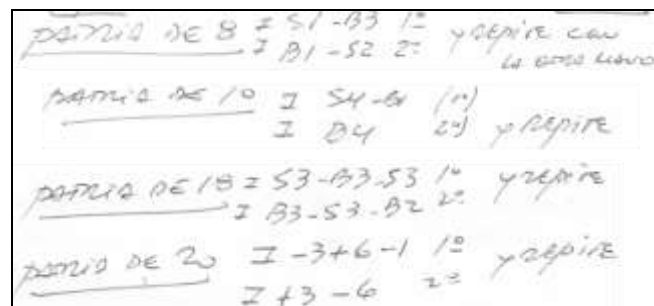 PATRIA DE 8 I S1-B3 1º y REPITE CON
I B1-S2 2º LA OTRA MANO
PATRIA DE 10 I S4-B1 1º)
I B4 2º) y REPITE
PATRIA DE 18 I S3-B3-S3 1º y REPITE
I B3-S3-B2 2º
PATRIA DE 20 I -3+6-1 1º y REPITE
I +3-6 2º